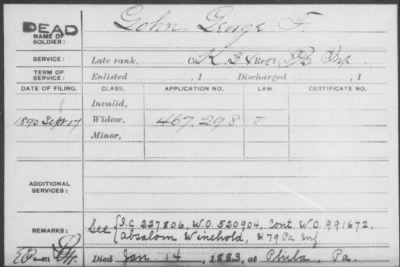 DEAD
NAME OF SOLDIER: Gohn, George F.
SERVICE: Late rank, Co. K. Reg't Pa Inf.
TERM OF SERVICE: Enlisted , 1 Discharged , 1
DATE OF FILING. CLASS. APPLICATION NO. LAW. CERTIFICATE NO.
Invalid,
1890 Sept 17 Widow, 467.298
Minor,
ADDITIONAL SERVICES:
REMARKS: See S.C. 227806, W.O. 520904, Cont. W.O. 991672.
Absalom Winehold, 79 Pa Inf
Died Jan 14, 1883, at Phila, Pa.